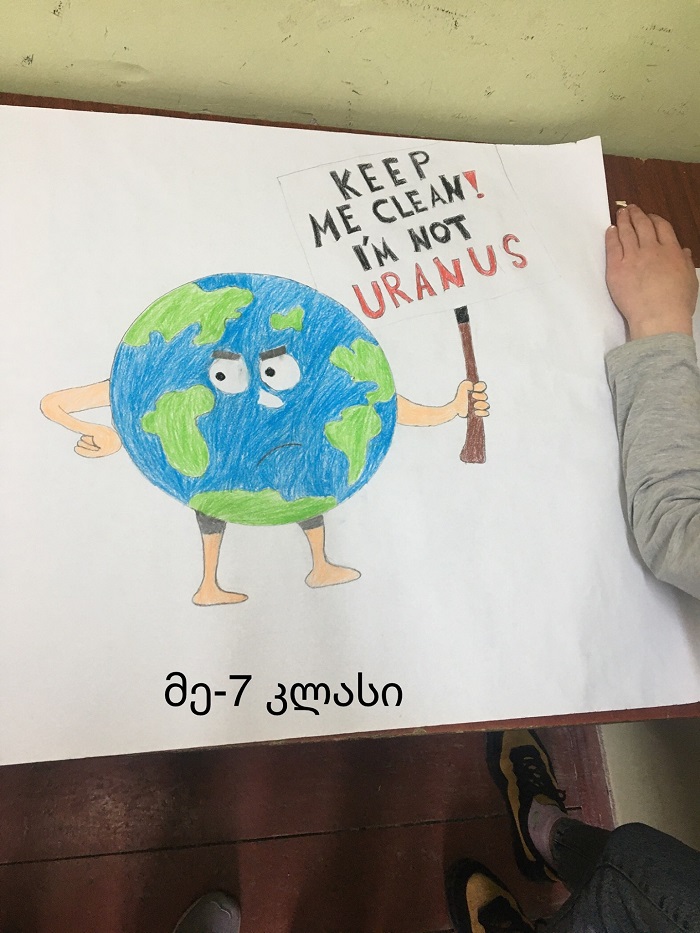 KEEP
ME CLEAN!
I'M NOT
URANUS
მე-7 კლასი